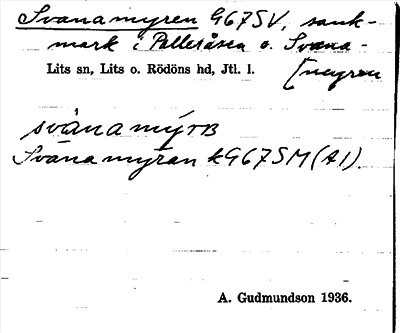 Svanamyren G67SV, sank-
mark i Pelleråsen o. Svana-
Lits sn, Lits o. Rödöns hd, Jtl. l. [myren
svånamýrB
Svånamyran kG67SM(A1).
A. Gudmundson 1936.